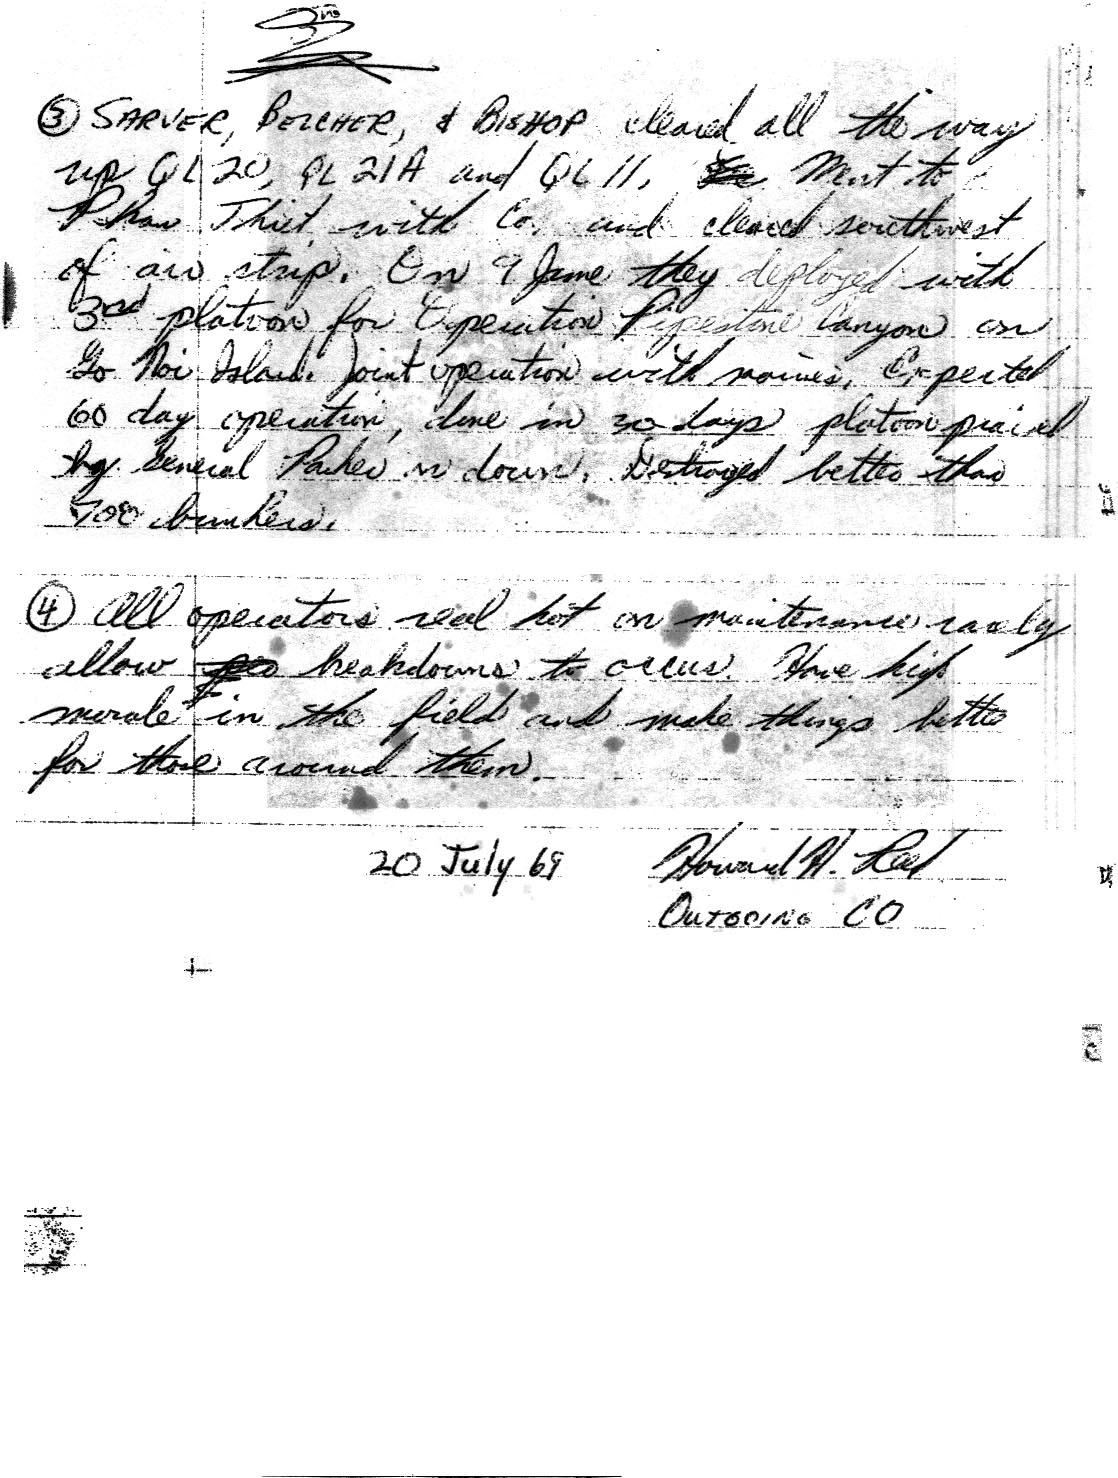 ③ SARVER, BELCHER, & BISHOP cleared all the way
up QL 20, QL 21A and QL 11. Went to
Phan Thiet with Co. and cleared southwest
of air strip. On 9 June they deployed with
3rd platoon for Operation Pipestone Canyon on
Go Noi Island. Joint operation with marines. Expected
60 day operation, done in 30 days platoon praised
by General Parker in down. Destroyed better than
700 bunkers.
④ All operators real hot on maintenance rarely
allow breakdowns to occur. Have high
morale in the field and make things better
for those around them.
20 July 69 Howard H. Reed
OUTGOING CO